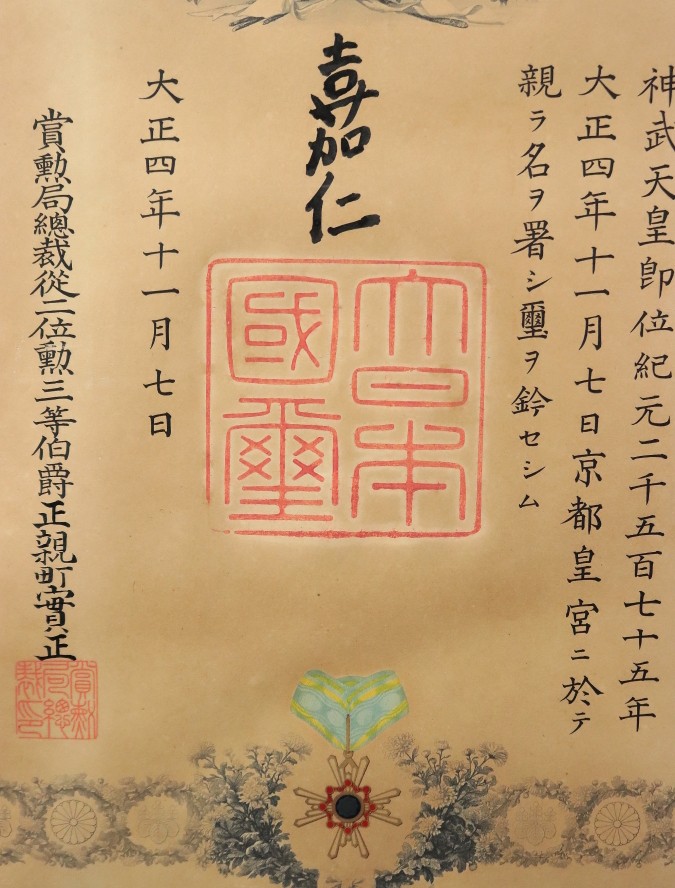 神武天皇卽位紀元二千五百七十五年
大正四年十一月七日京都皇宮ニ於テ
親ラ名ヲ署シ璽ヲ鈐セシム
嘉仁
大日本
國璽
大正四年十一月七日
賞勲局總裁從二位勲三等伯爵正親町實正
賞勲
局總
裁印